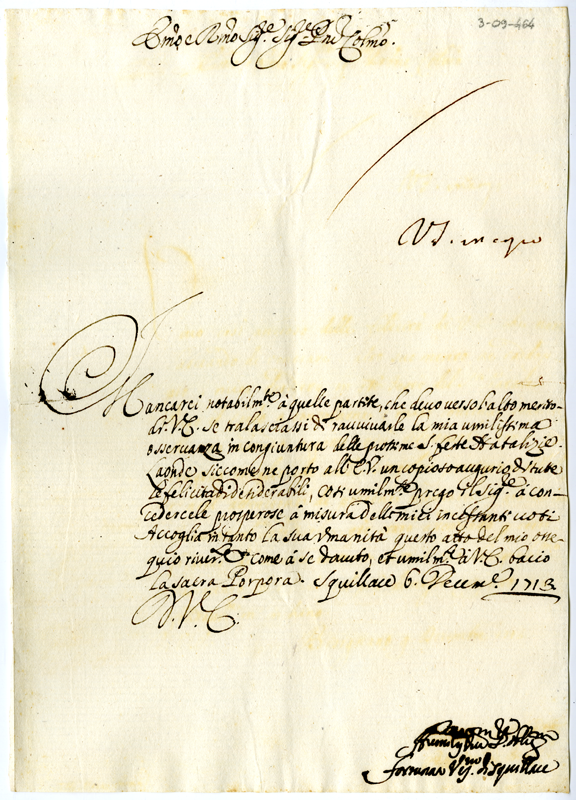 3-09-464
Em̃o e Rm̃o Sig.e Sig.e Pne Colmo.
Mancarei notabilm.te à quelle partite, che devo verso l'alto merito
di V.E. se tralasciassi di ravvivarle la mia umilissima
osservanza in congiuntura delle prossime S. feste Natalizie.
Laonde siccome ne porto all' E.V. un copioso augurio di tutte
le felicità desiderabili, così umilm.te prego il Sig.e à con-
cedercele prosperose à misura delli miei incessanti voti
Accoglia intanto la sua Umanità questo atto del mio osse-
quio river.te come à se dovuto, et umilm.te à V.E. bacio
la sacra Porpora. Squillace 6. Decem.e 1713.
D.V.E.
Vęs. di Squillace